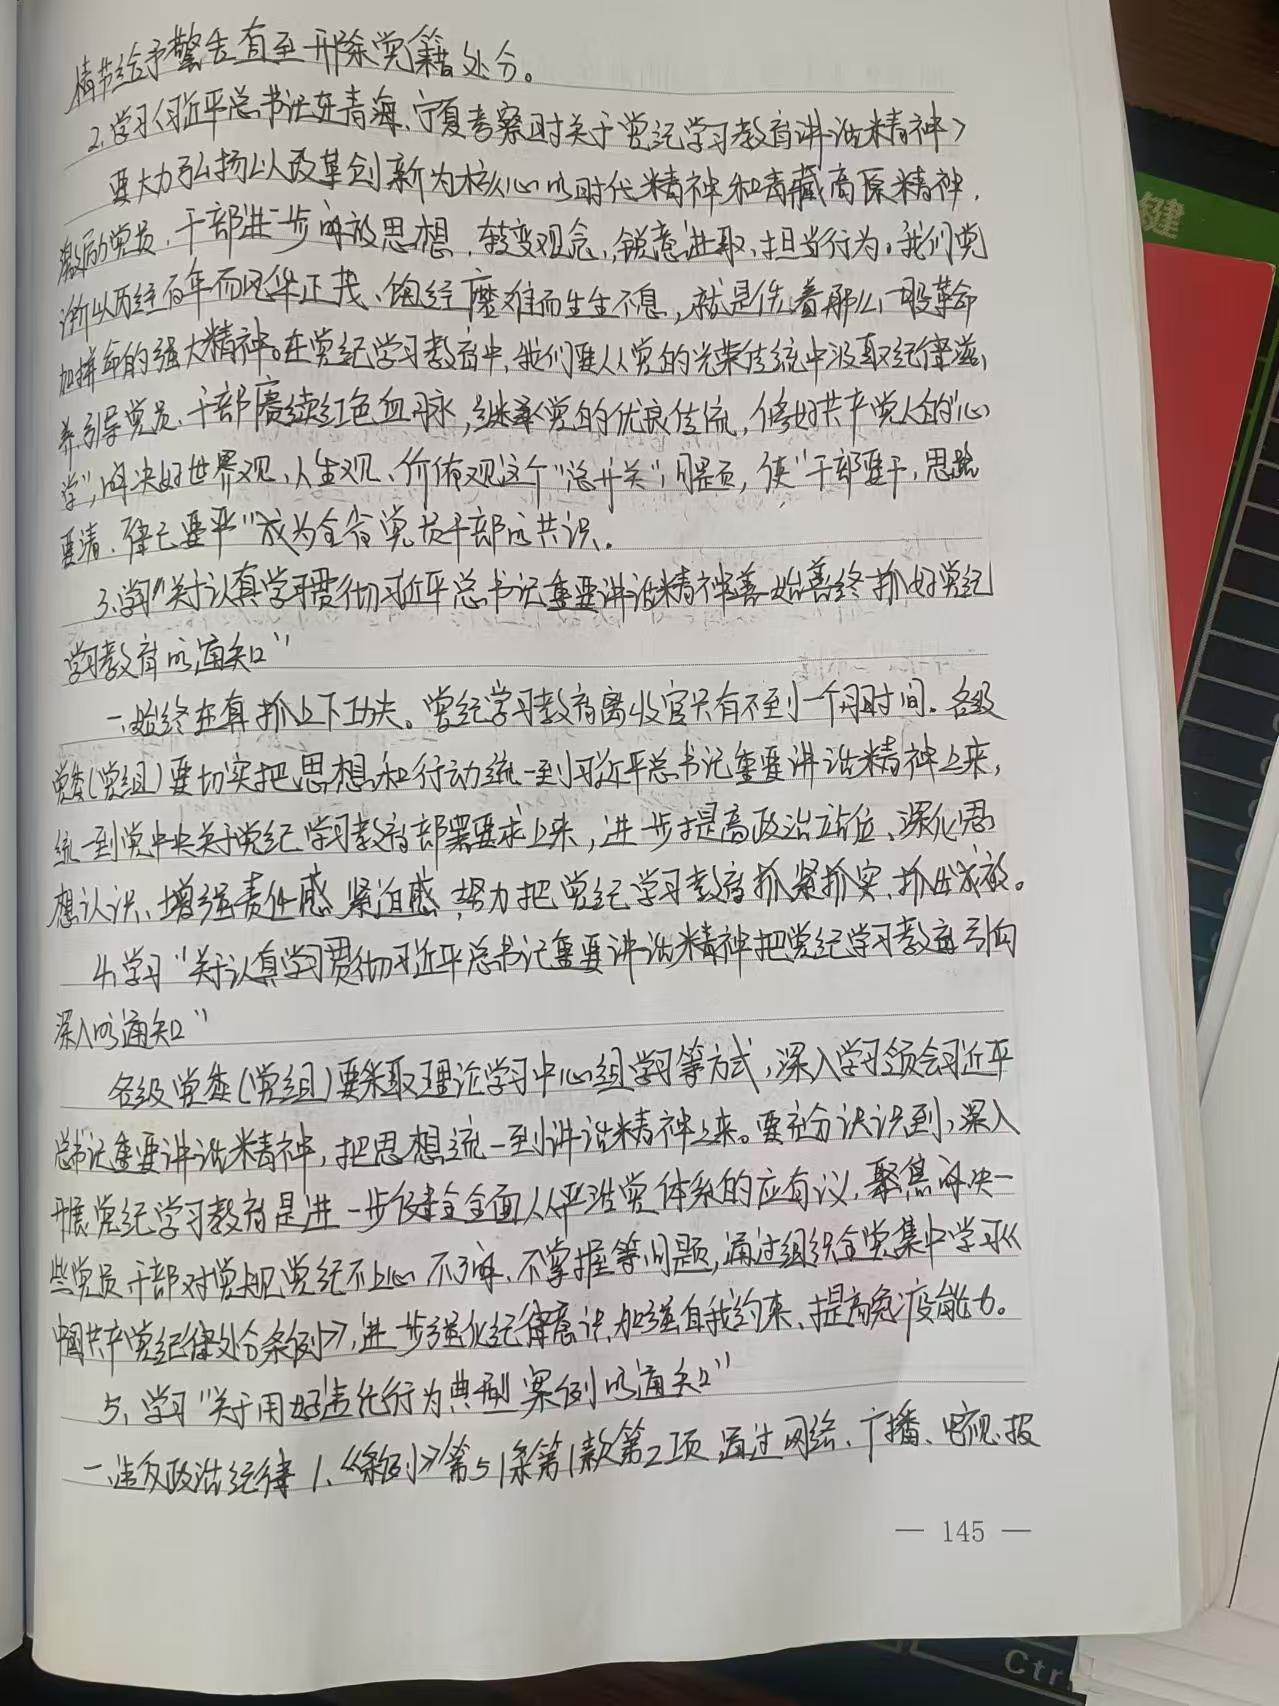 情节给予警告直至开除党籍处分。
2.学习《习近平总书记在青海、宁夏考察时关于党纪学习教育讲话精神》
要大力弘扬以改革创新为核心的时代精神和青藏高原精神，
激励党员、干部进一步解放思想、转变观念、锐意进取、担当行为。我们党
所以历经百年而风华正茂、饱经磨难而生生不息，就是凭着那么一股革命
加拼命的强大精神。在党纪学习教育中，我们要从党的光荣传统中汲取纪律滋
养引导党员、干部赓续红色血脉，继承党的优良传统，修好共产党人的“心
学”，解决好世界观、人生观、价值观这个“总开关”问题，使“干部要干，思路
要清、律己要严”成为全省党员干部的共识。
3.学习“关于认真学习贯彻习近平总书记重要讲话精神善始善终抓好党纪
学习教育的通知”
一、始终在真抓上下功夫。党纪学习教育离收官只有不到一个月时间。各级
党委(党组)要切实把思想和行动统一到习近平总书记重要讲话精神上来，
统一到党中央关于党纪学习教育部署要求上来，进一步提高政治站位、深化思
想认识、增强责任感紧迫感，努力把党纪学习教育抓紧抓实、抓出成效。
4.学习“关于认真学习贯彻习近平总书记重要讲话精神把党纪学习教育引向
深入的通知”
各级党委(党组)要采取理论学习中心组学习等方式，深入学习领会习近平
总书记重要讲话精神，把思想统一到讲话精神上来。要充分认识到，深入
开展党纪学习教育是进一步健全全面从严治党体系的应有议，聚焦解决一
些党员干部对党规党纪不上心不了解、不掌握等问题，通过组织全党集中学习《
中国共产党纪律处分条例》，进一步强化纪律意识、加强自我约束、提高免疫能力。
5、学习“关于用好违纪行为典型案例的通知”
一、违反政治纪律 1、《条例》第51条第1款第2项 通过网络、广播、电视、报
— 145 —
健
Ctr